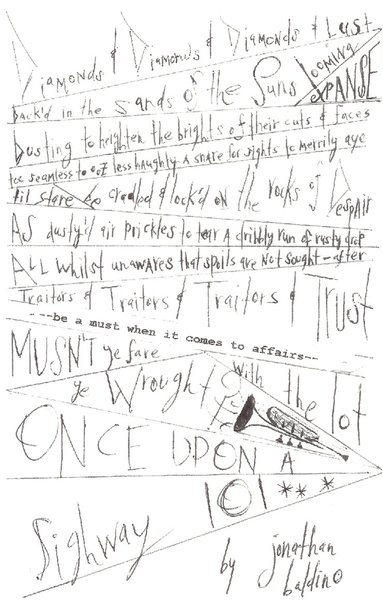 Diamonds & Diamonds & Diamonds & Lust
back'd in the sands of the Suns looming EXPANSE
Dusting to heighten the brights of their cuts & faces
too seamless to oof less haughly a snare for sights to merrily aye
til stare be cradled & lock'd on the rocks of Despair
AS dusty'd air prickles to tear A dribbly run of rusty drop
ALL Whilst unawares that spoils are Not Sought-after
Traitors & Traitors & Traitors & Trust
---be a must when it comes to affairs--
MUSN'T ye fare
ye Wrought with the lot
ONCE UPON A
Sighway 101***
by jonathan
baldino